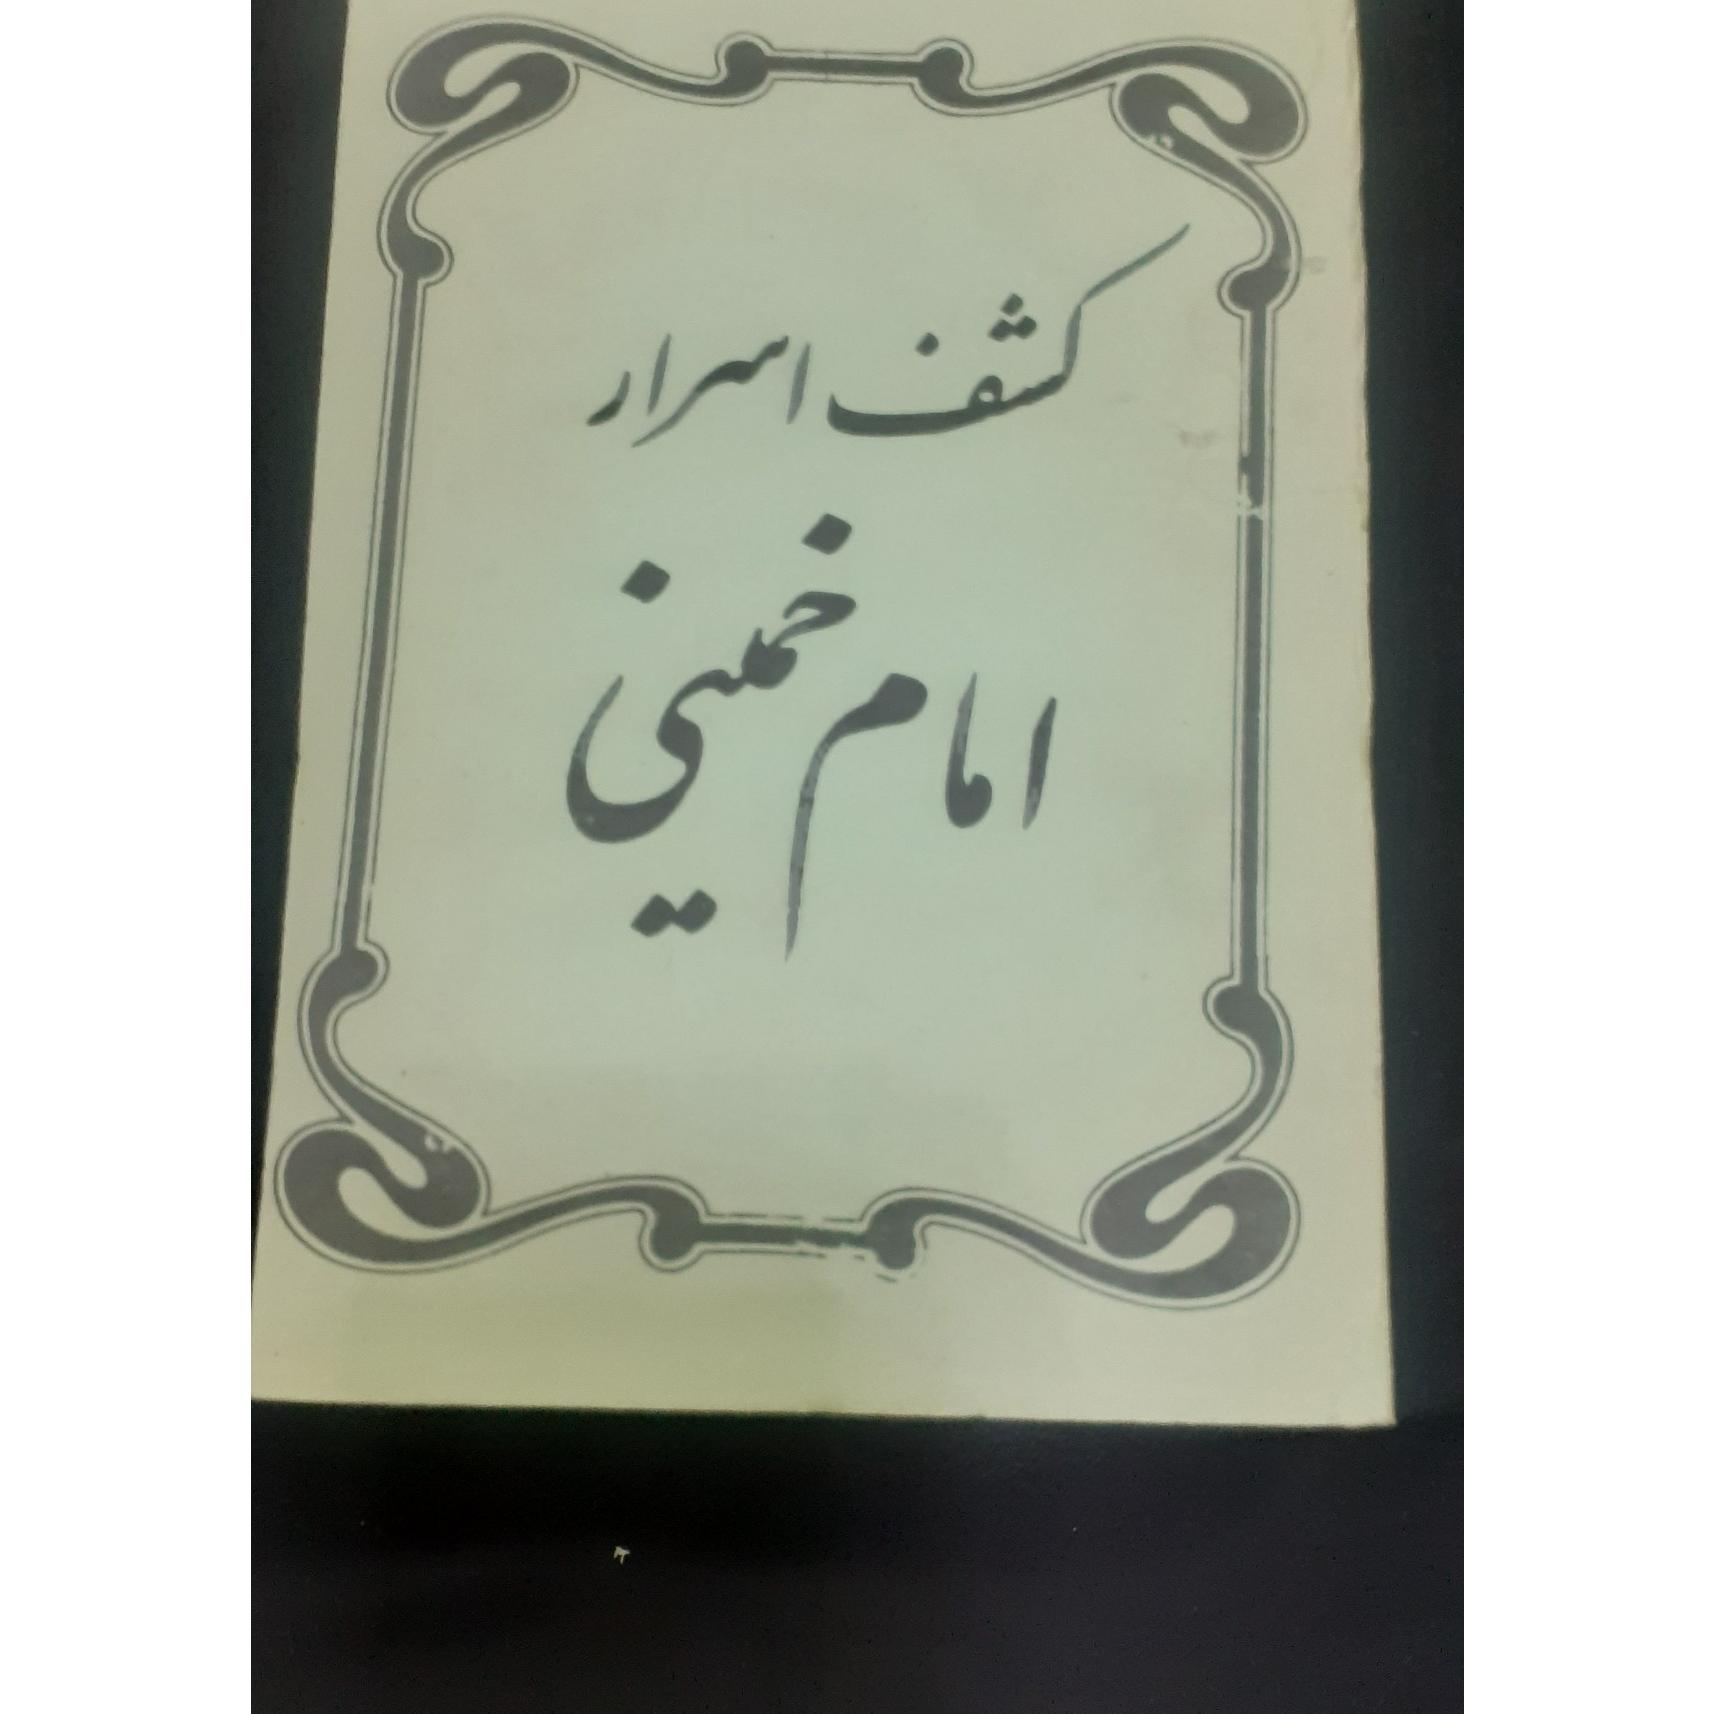 کشف اسرار
امام خمینی